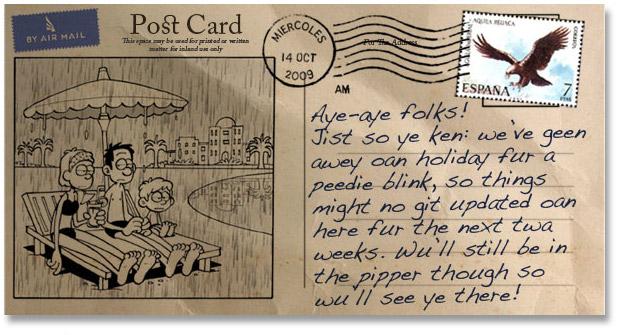 BY AIR MAIL
Post Card
This space may be used for printed or written
matter for inland use only
MIERCOLES
14 OCT
2009
AM
For The Address
AQUILA HELIACA
CORREOS
ESPAÑA
7
PTAS
Aye-aye folks!
Jist so ye ken: we've geen
awey oan holiday fur a
peedie blink, so things
might no git updated oan
here fur the next twa
weeks. Wu'll still be in
the pipper though so
wu'll see ye there!